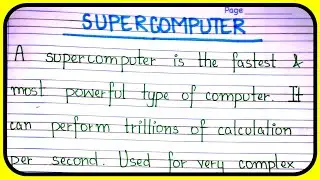 Page
SUPERCOMPUTER
A supercomputer is the fastest &
most powerful type of computer. It
can perform trillions of calculation
per second. Used for very complex